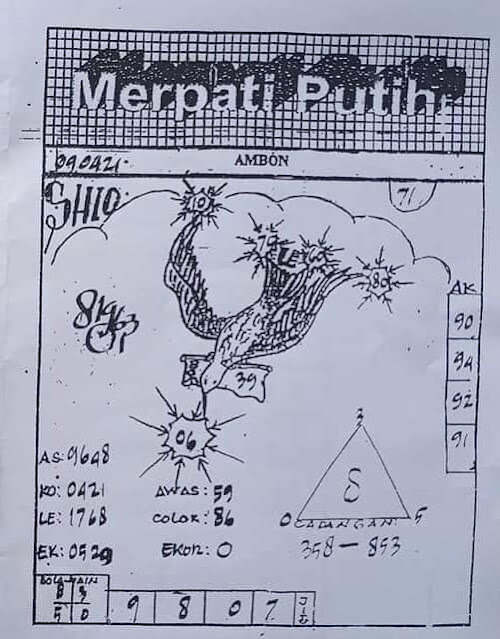 Merpati Putih
090421.
AMBON
SHIO.
71
10
79
LE
63
80
AK
90
94
92
91
39
06
AS: 9648
KO: 0421
LE: 1768
EK: 0529
AWAS: 59
COLOK: 86
EKOR: 0
3
8
0
CADANGAN
5
358 - 853
BOLA MAIN
8 3
5 0
9 8 0 7
JIT